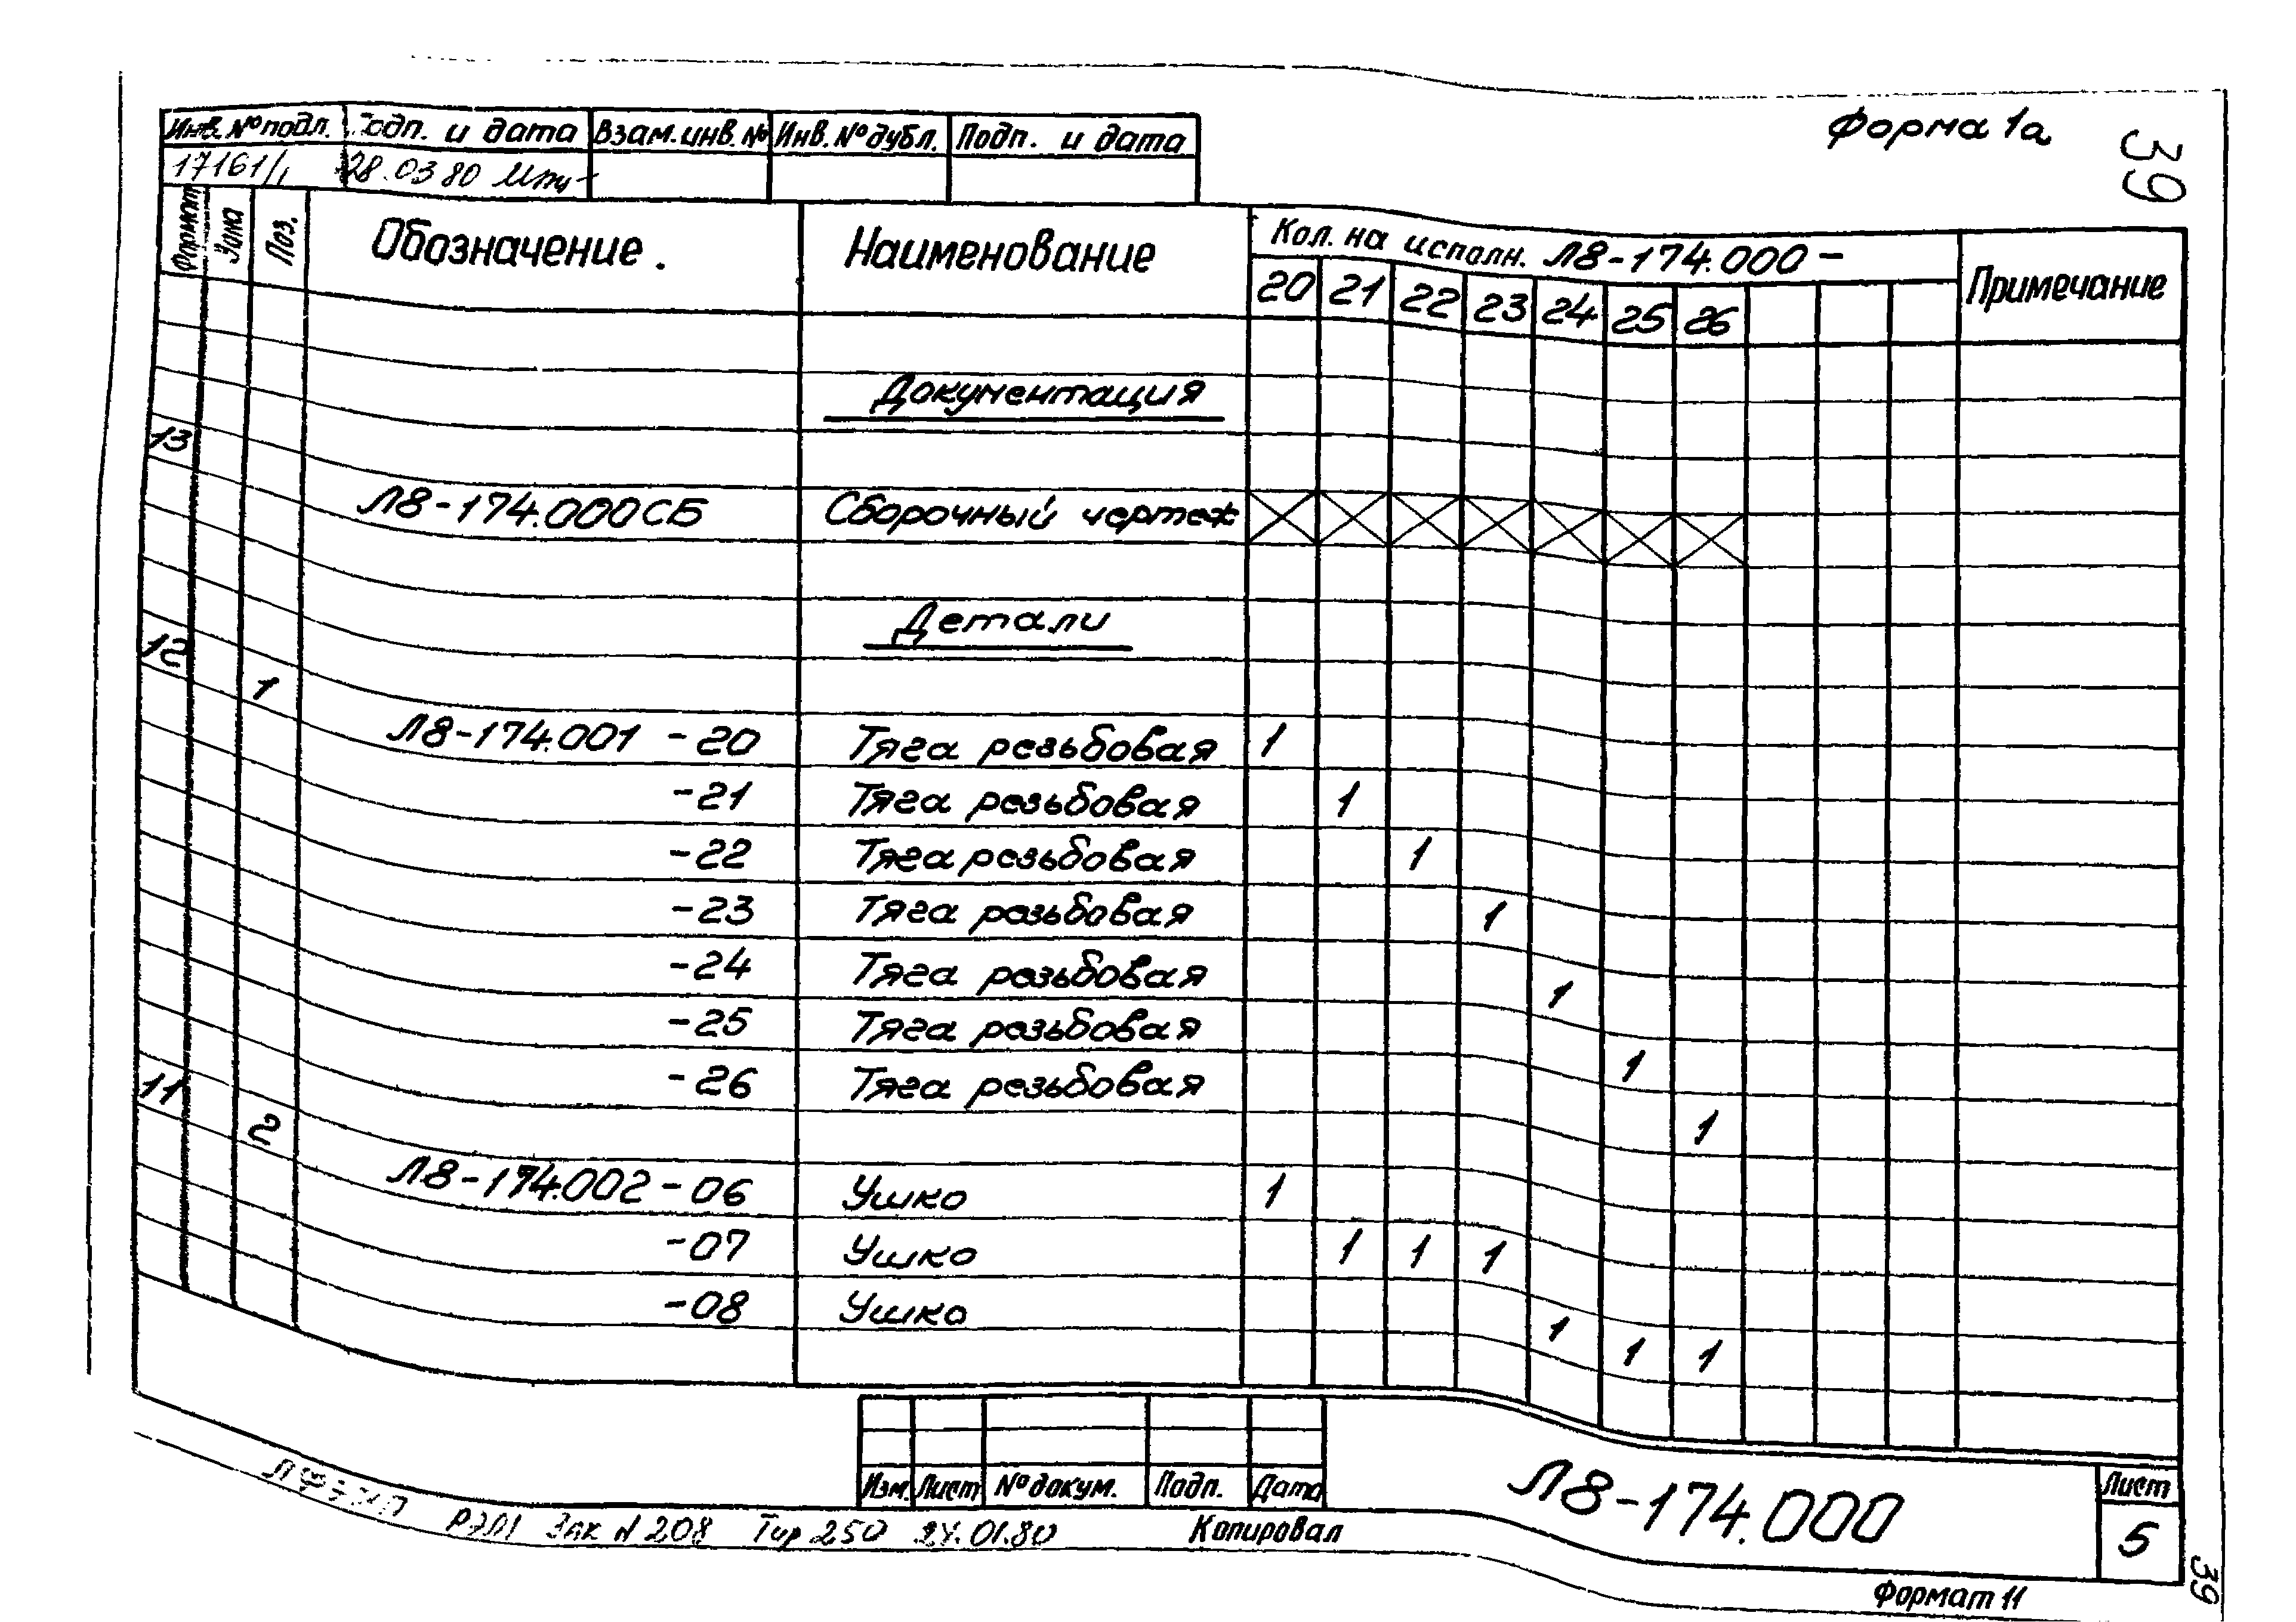 Форма 1а
39
Инв. № подл. Подп. и дата Взам. инв. № Инв. № дубл. Подп. и дата
17161/1 28.03.80
Формат Зона Поз. Обозначение. Наименование Кол. на исполн. Л8-174.000 - Примечание
20 21 22 23 24 25 26
Документация
13 Л8-174.000СБ Сборочный чертеж
Детали
12 1 Л8-174.001 -20 Тяга резьбовая 1
-21 Тяга резьбовая 1
-22 Тяга резьбовая 1
-23 Тяга резьбовая 1
-24 Тяга резьбовая 1
-25 Тяга резьбовая 1
-26 Тяга резьбовая 1
11 2 Л8-174.002 -06 Ушко 1
-07 Ушко 1 1 1
-08 Ушко 1 1 1
Изм. Лист № докум. Подп. Дата
Л8-174.000
Лист
5
Зак N 208 Тир 250 24.01.80 Копировал
Формат 11
39